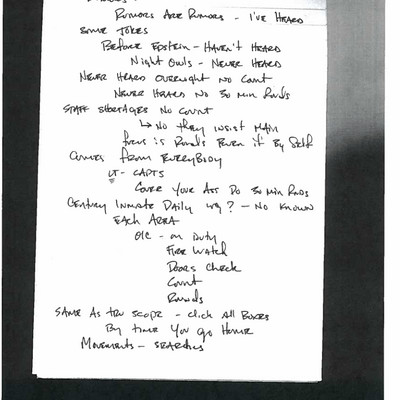 Rumors Are Rumors - I've Heard
Some Jokes
Before Epstein - Haven't Heard
Night Owls - Never Heard
Never Heard Overnight No Count
Never Heard No 30 Min Rnds
Staff Shortages No Count
↳ No they insist main
focus is Rounds Even if By Self
Comes From Everybody
LT - CAPTS
Cover Your Ass Do 30 Min Rnds
Inmate Daily ? - No Known
Each Area
OIC - on Duty
Fire Watch
Doors Check
Count
Rounds
Same As Tru Scope - Click All Boxes
By time You go Home
Movements - Searches